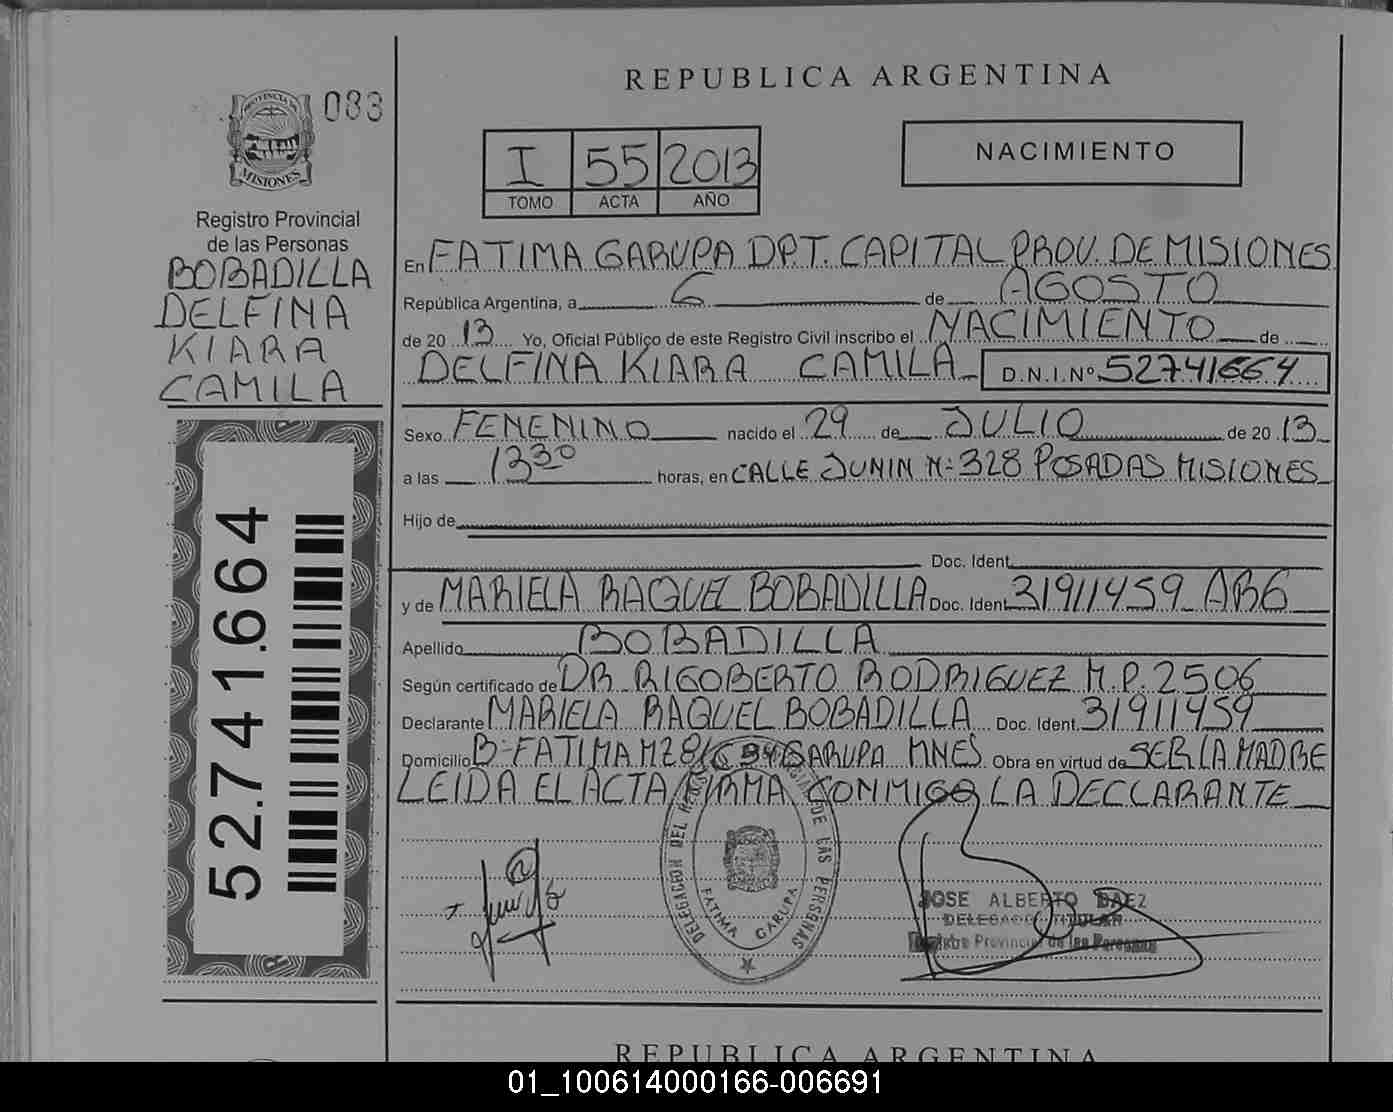 REPUBLICA ARGENTINA
083
PROVINCIA DE
MISIONES
Registro Provincial
de las Personas
BOBADILLA
DELFINA
KIARA
CAMILA
52.741.664
I 55 2013
TOMO ACTA AÑO
NACIMIENTO
En FATIMA GARUPA DPT. CAPITAL PROV. DE MISIONES
República Argentina, a 6 de AGOSTO
de 20 13 Yo, Oficial Público de este Registro Civil inscribo el NACIMIENTO de
DELFINA KIARA CAMILA D.N.I.Nº 52741664
Sexo FEMENINO nacido el 29 de JULIO de 20 13
a las 13 30 horas, en CALLE JUNIN Nº 328 POSADAS MISIONES
Hijo de
Doc. Ident.
y de MARIELA RAQUEL BOBADILLA Doc. Ident. 31911459 ARG
Apellido BOBADILLA
Según certificado de DR RIGOBERTO RODRIGUEZ M.P. 2506
Declarante MARIELA RAQUEL BOBADILLA Doc. Ident. 31911459
Domicilio Bº FATIMA MZ 81 C 94 GARUPA MNES. Obra en virtud de SER LA MADRE
LEIDA EL ACTA FIRMA CONMIGO LA DECLARANTE
DELEGACION DEL DE LAS PERSONAS
FATIMA GARUPA
JOSE ALBERTO BAEZ
DELEGADO TITULAR
Registro Provincial de las Personas
REPUBLICA ARGENTINA
01_100614000166-006691